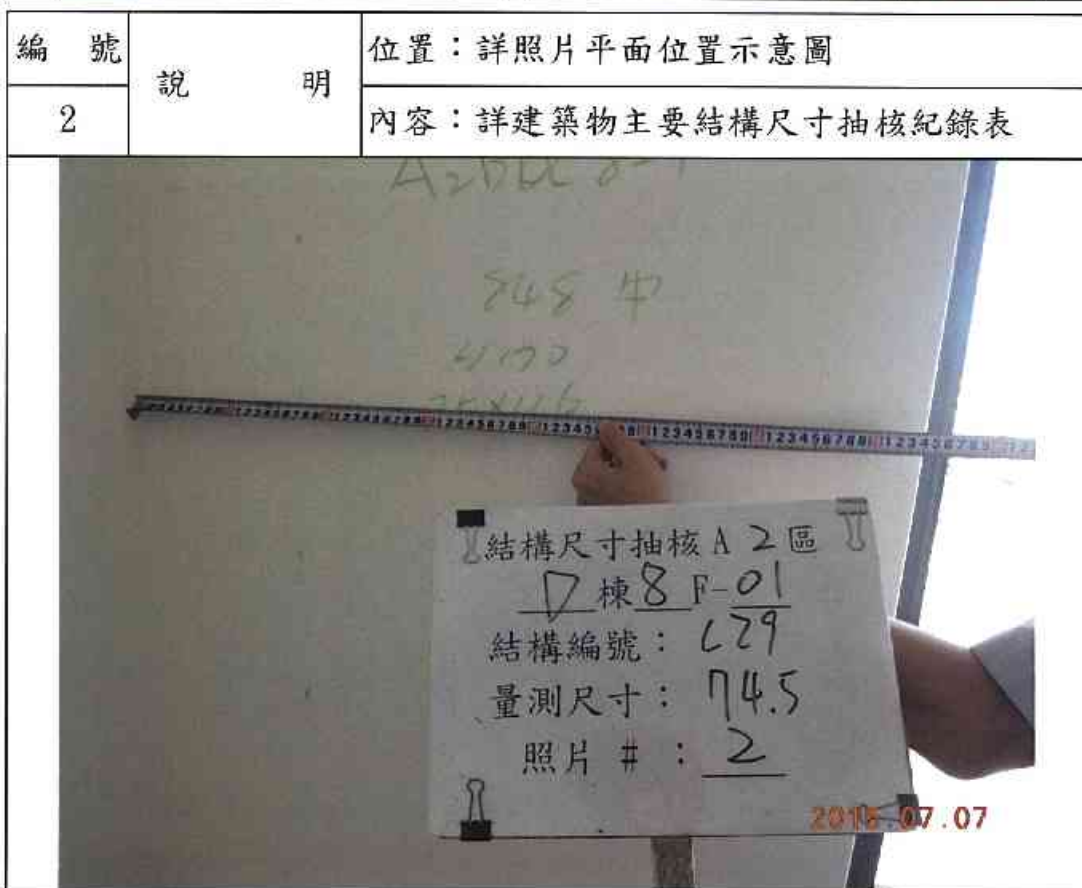 編 號
說 明
位置：詳照片平面位置示意圖
2
內容：詳建築物主要結構尺寸抽核紀錄表
848 中
結構尺寸抽核A 2區
D棟8F-01
結構編號：C29
量測尺寸：74.5
照片 #：2
07.07